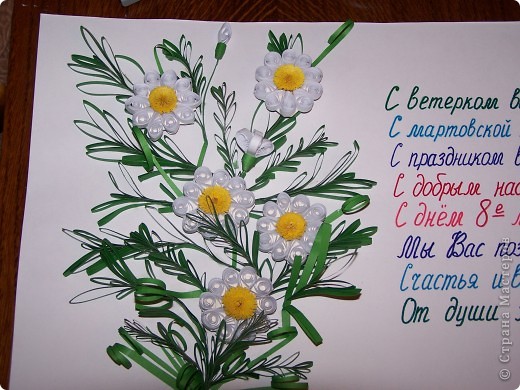 С ветерком
С мартовской
С праздником
С добрым
С днём 8е
Мы Вас
Счастья и
От души
© Страна Мастеров